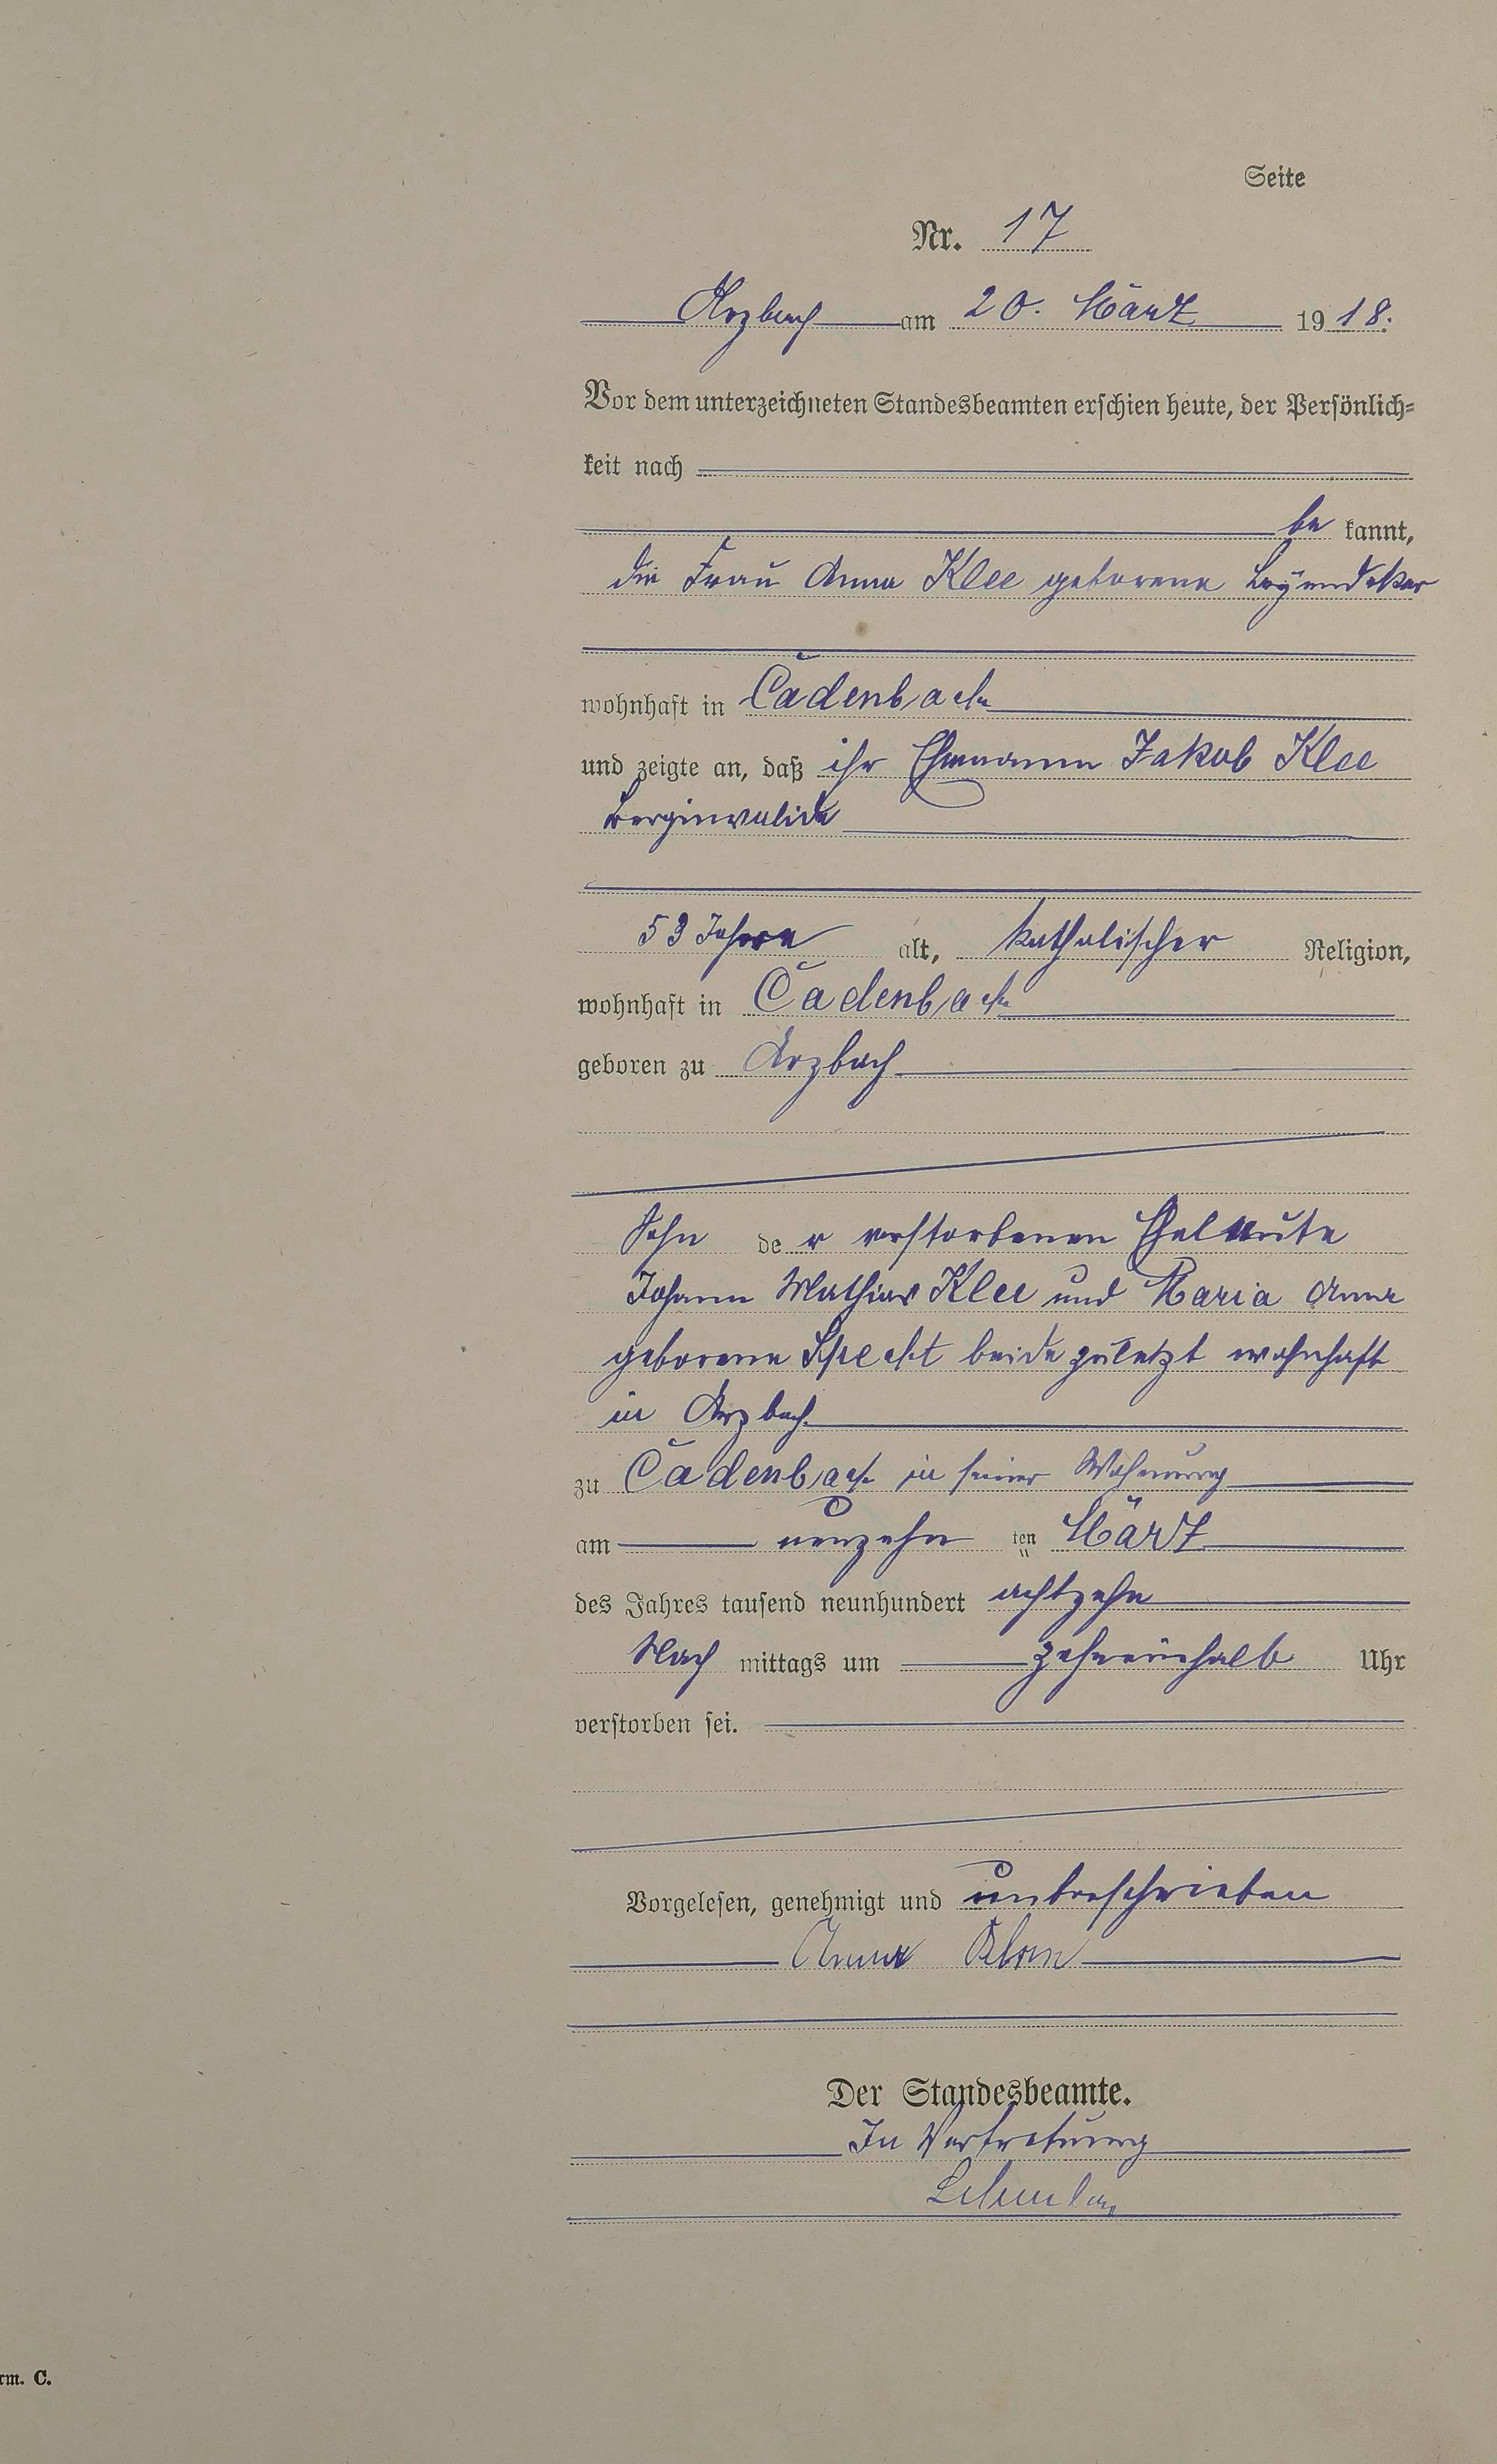 Seite
Nr. 17
Arzbach am 20. März 1918.
Vor dem unterzeichneten Standesbeamten erschien heute, der Persönlich=
keit nach
be kannt,
die Frau Anna Klee geborene Leyendeker
wohnhaft in Cadenbach
und zeigte an, daß ihr Ehemann Jakob Klee
Berginvalide
53 Jahre alt, katholischer Religion,
wohnhaft in Cadenbach
geboren zu Arzbach
Sohn der verstorbenen Eheleute
Johann Mathias Klee und Maria Anna
geborene Specht beide zuletzt wohnhaft
in Arzbach
zu Cadenbach in seiner Wohnung
am neunzehn ten März
des Jahres tausend neunhundert achtzehn
Nach mittags um zehneinhalb Uhr
verstorben sei.
Vorgelesen, genehmigt und unterschrieben
Anna Klee
Der Standesbeamte.
In Vertretung
rm. C.